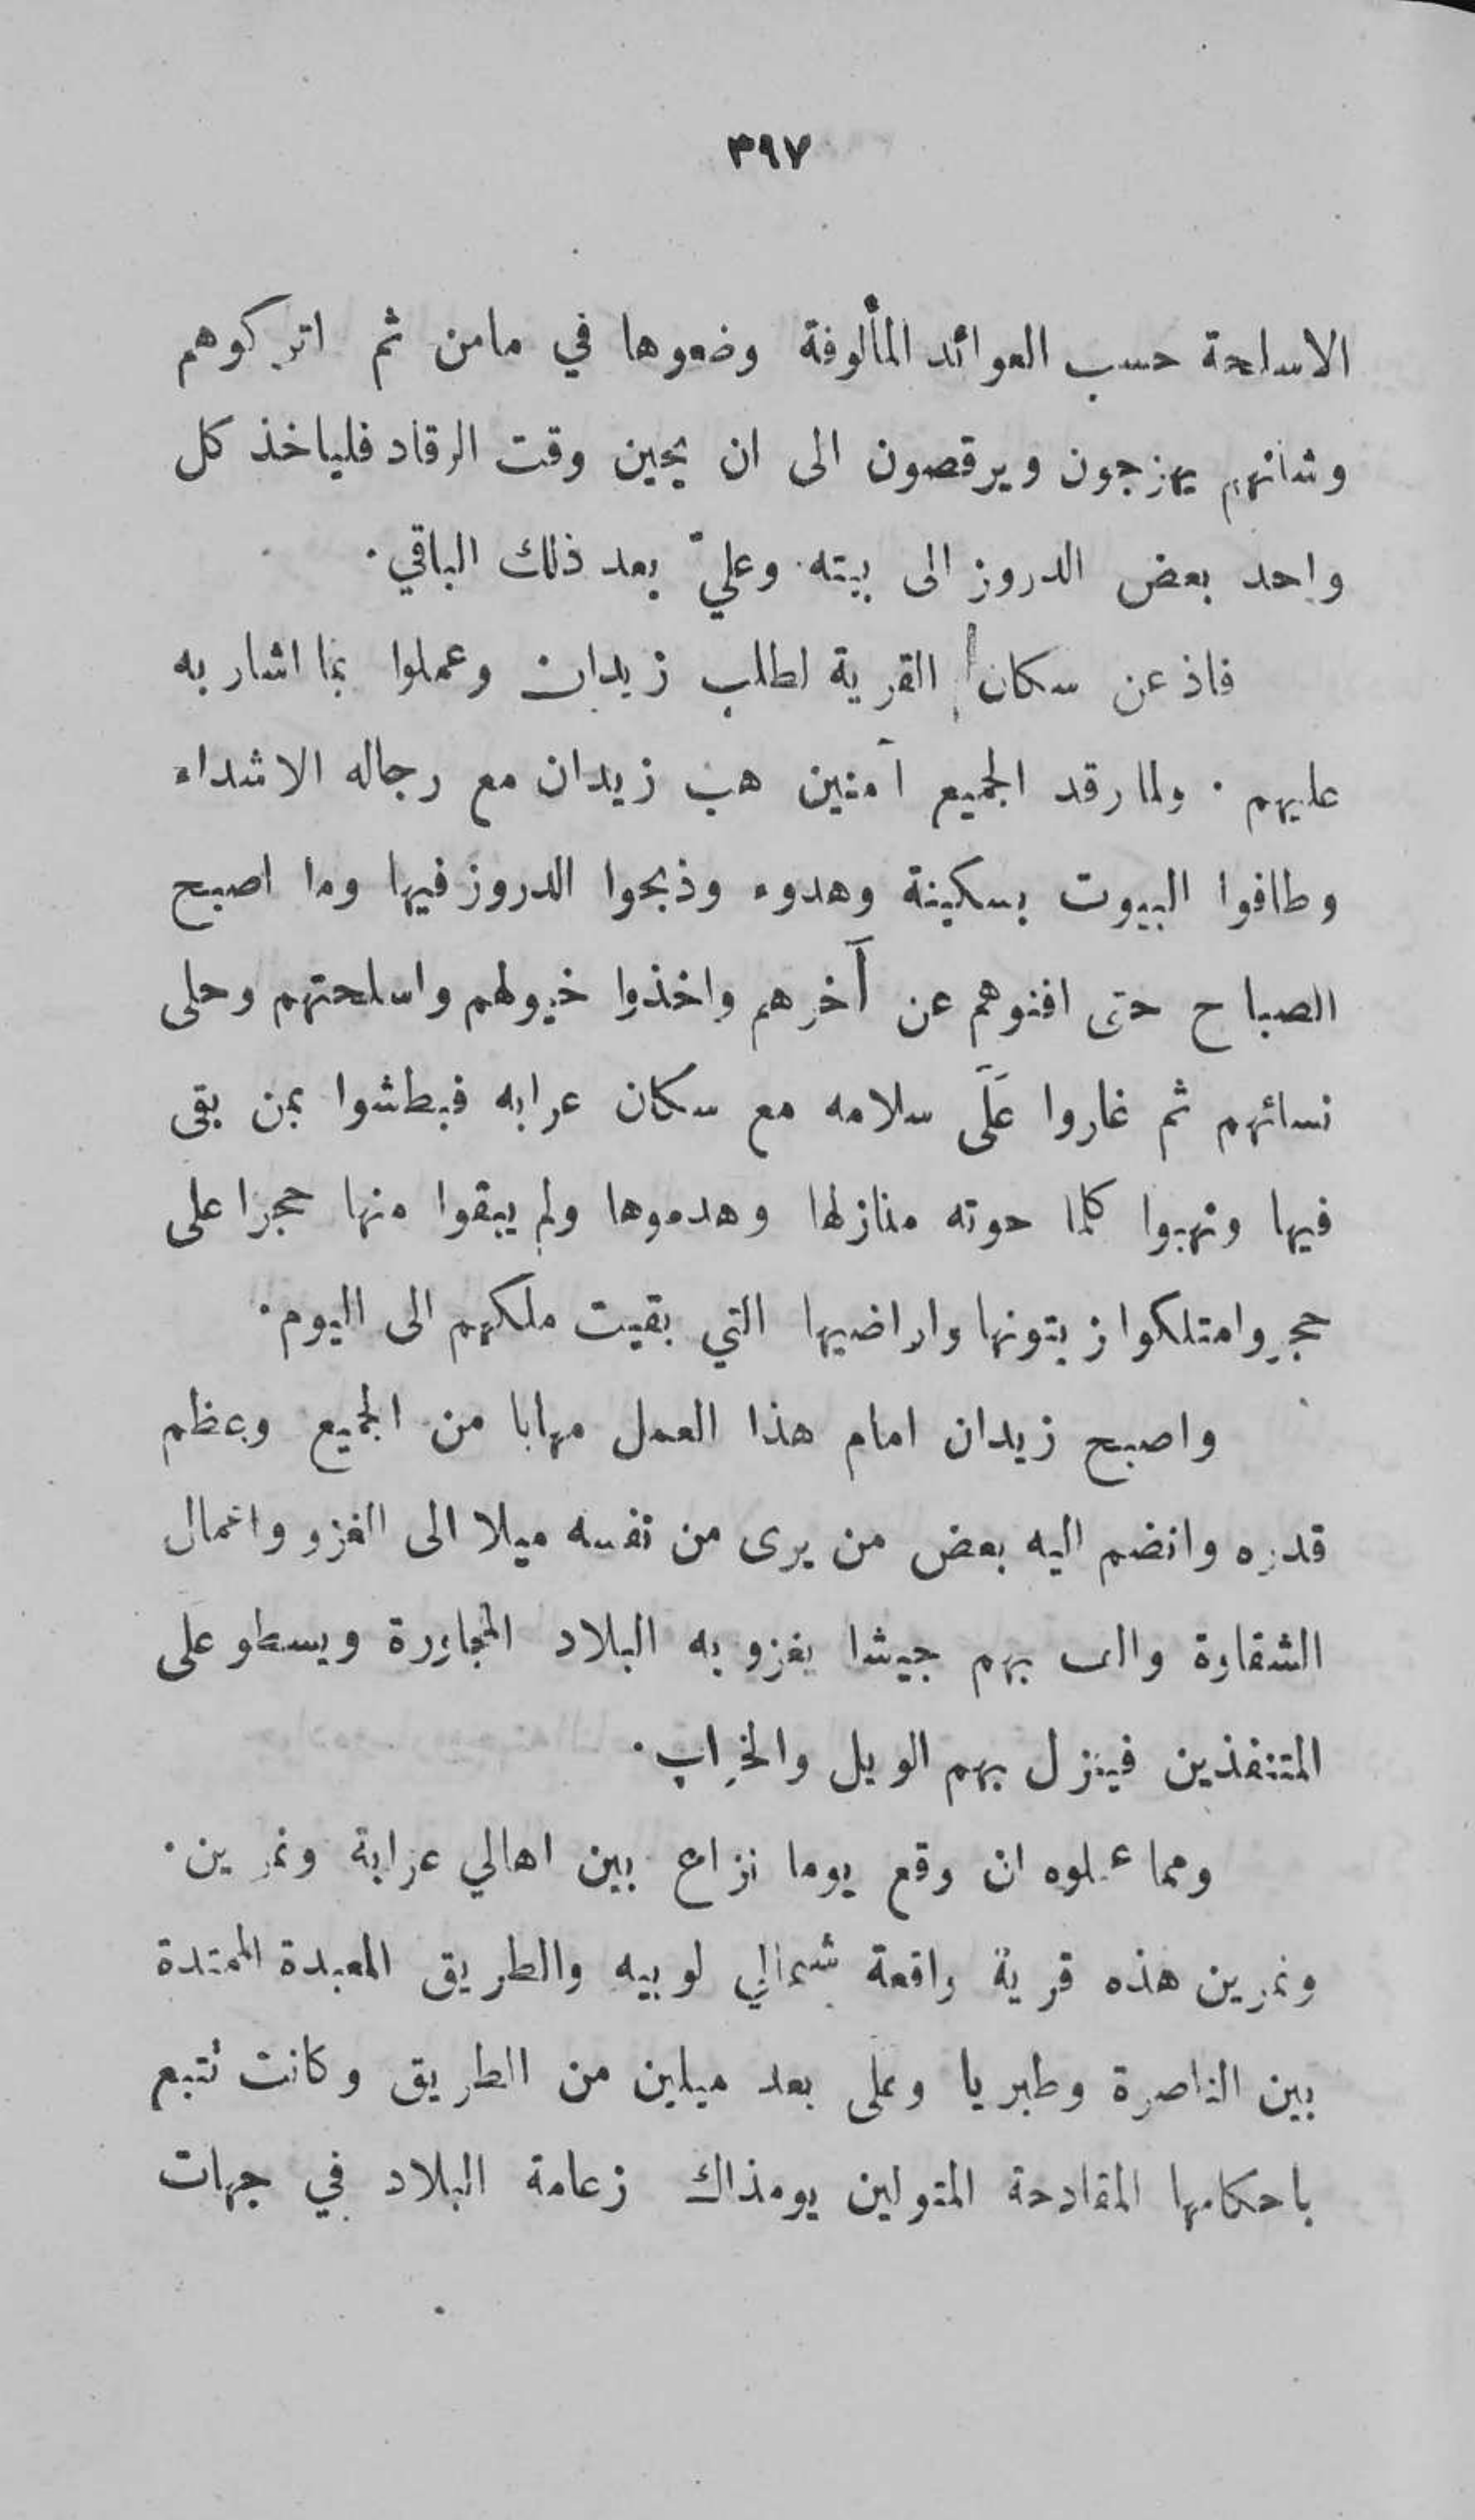 ٣٩٧
الاسلحة حسب العوائد المألوفة وضعوها في مامن ثم اتركوهم
وشانهم يهزجون ويرقصون الى ان يحين وقت الرقاد فلياخذ كل
واحد بعض الدروز الى بيته. وعليّ بعد ذلك الباقي.
فاذعن سكان القرية لطلب زيدان وعملوا بما اشار به
عليهم. ولما رقد الجميع آمنين هب زيدان مع رجاله الاشداء
وطافوا البيوت بسكينة وهدوء وذبحوا الدروز فيها وما اصبح
الصباح حتى افنوهم عن آخرهم واخذوا خيولهم واسلحتهم وحلى
نسائهم ثم غاروا عَلَى سلامه مع سكان عرابه فبطشوا بمن بقى
فيها ونهبوا كلما حوته منازلها وهدموها ولم يبقوا منها حجرا على
حجر وامتلكوا زيتونها واراضيها التي بقيت ملكهم الى اليوم.
واصبح زيدان امام هذا العمل مهابا من الجميع وعظم
قدره وانضم اليه بعض من يرى من نفسه ميلا الى الغزو واعمال
الشقاوة والف بهم جيشا يغزو به البلاد المجاورة ويسطو على
المتنفذين فينزل بهم الويل والخراب.
ومما عملوه ان وقع يوما نزاع بين اهالي عرابة ونمرين.
ونمرين هذه قرية واقعة شمالي لوبيه والطريق المعبدة الممتدة
بين الناصرة وطبريا وعلى بعد ميلين من الطريق وكانت تتبع
باحكامها المقادحة المتولين يومذاك زعامة البلاد في جهات